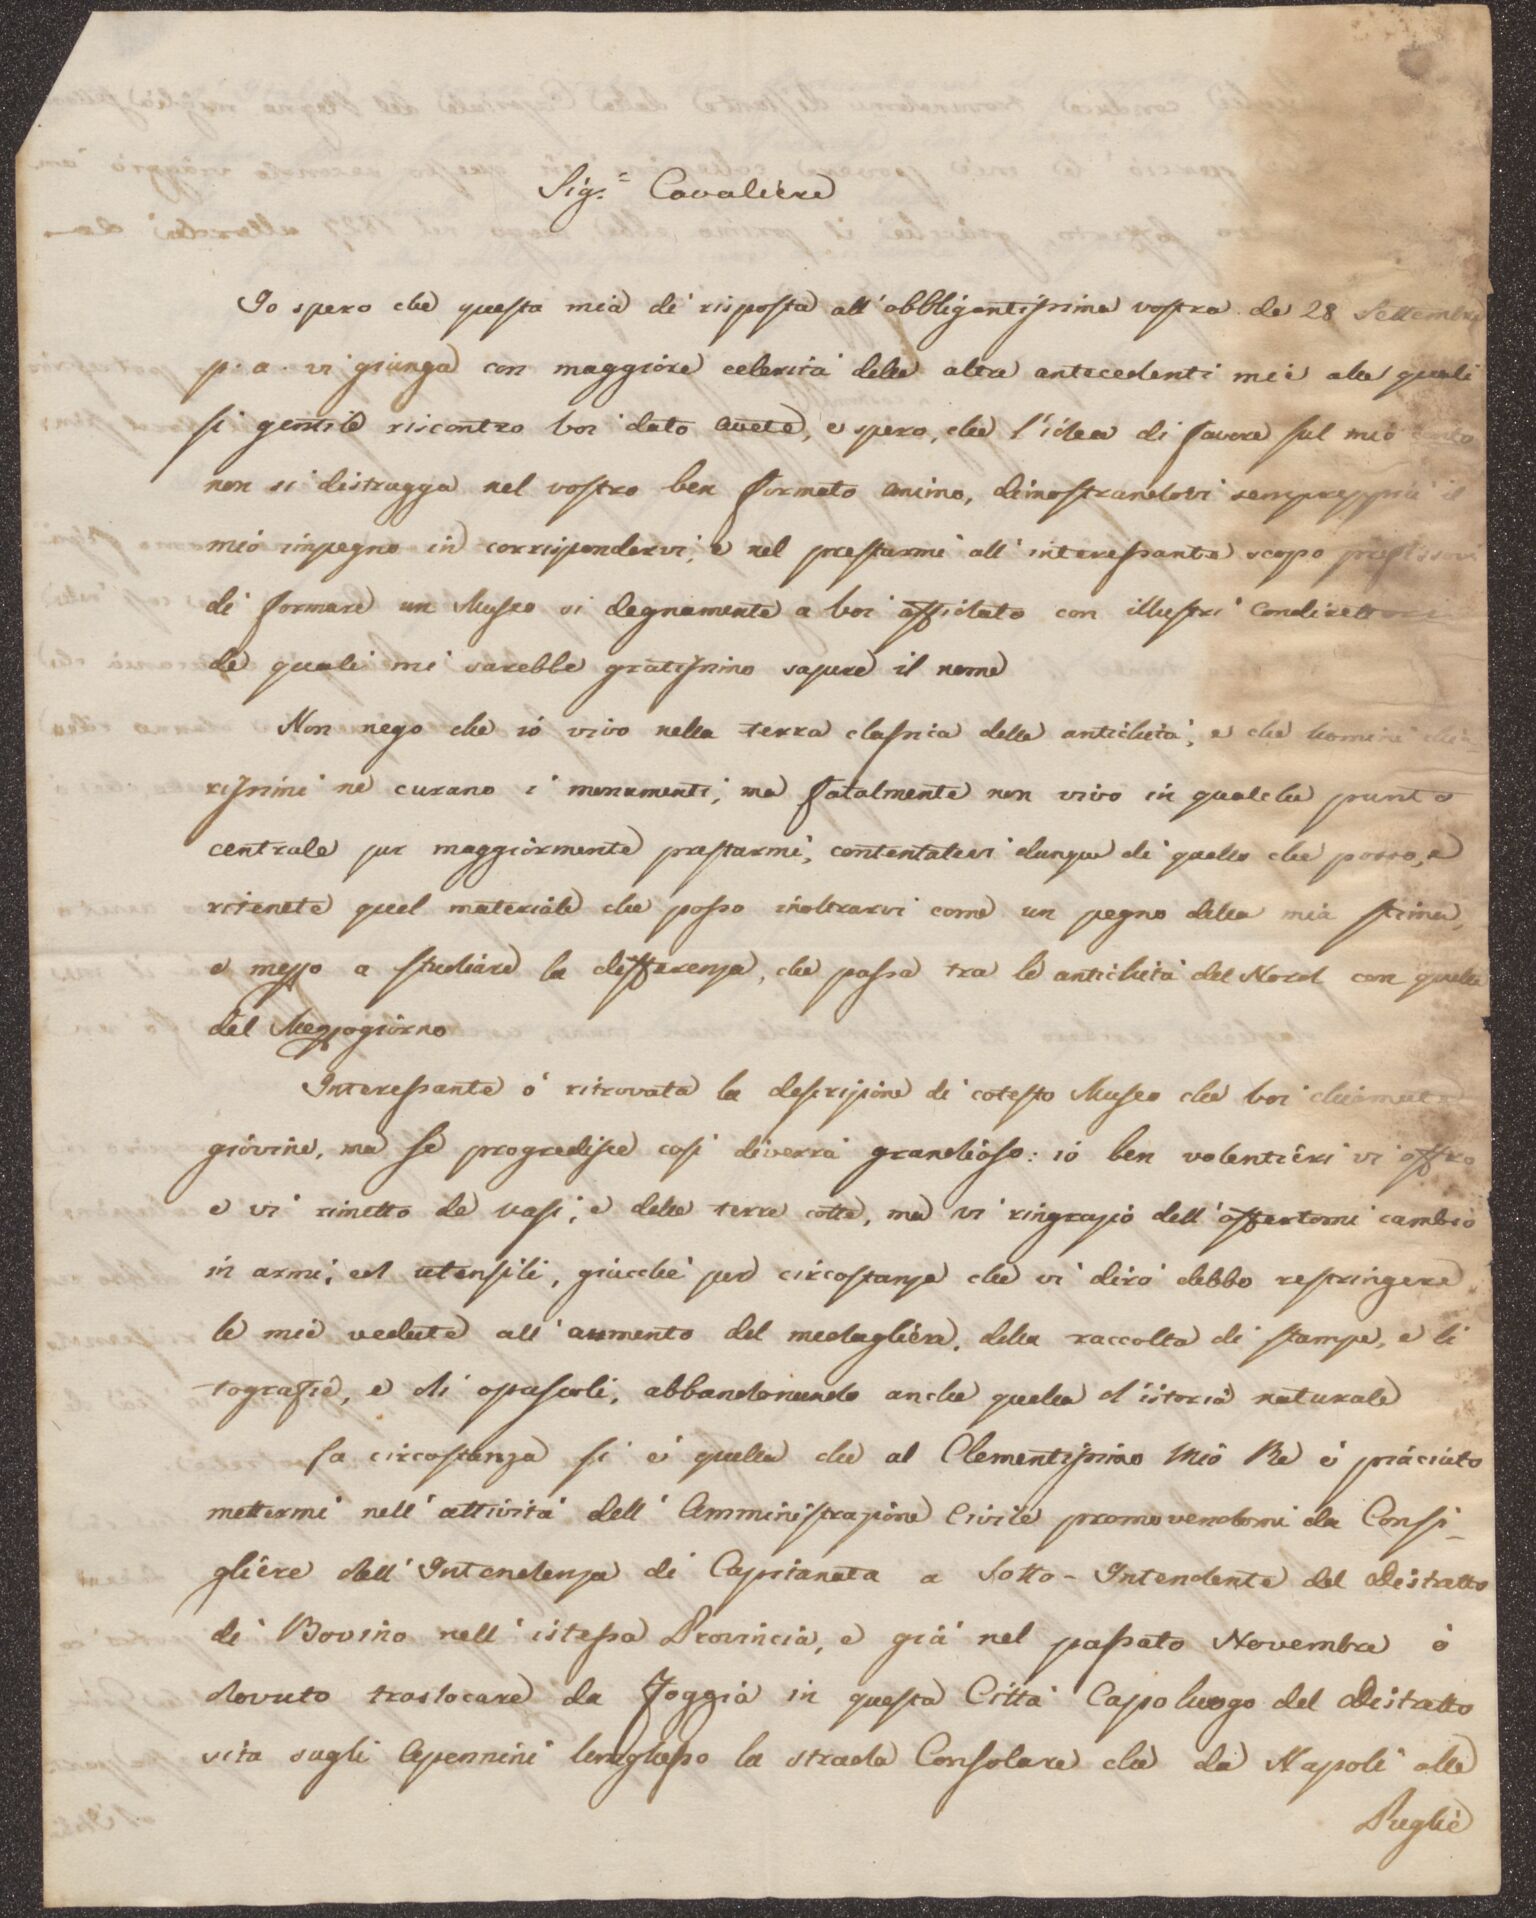 Sig.re Cavaliere
Io spero che questa mia di risposta all'obbligantissima vostra de 28 Settembre
p. a. vi giunga con maggiore celerità delle altre antecedenti mie alle quali
si gentile riscontro voi dato avete, e spero, che l'idea di favore sul mio conto
non si distrugga nel vostro ben formato animo, dimostrandovi sempreppiù il
mio impegno in corrispondervi, e nel prestarmi all'interessante scopo prefissovi
di formare un Museo sì degnamente a voi affidato con illustri Condirettori
de quali mi sarebbe gratissimo sapere il nome
Non nego che io vivo nella terra classica delle antichità, e che uomini chia-
rissimi ne curano i monumenti, ma fatalmente non vivo in qualche punto
centrale per maggiormente prestarmi, contentatevi dunque di quello che posso, e
ritenete quel materiale che posso inoltrarvi come un pegno della mia stima,
e mezzo a studiare la differenza, che passa tra le antichità del Nord con quelle
del Mezzogiorno
Interessante ò ritrovata la descrizione di cotesto Museo che voi chiamate
giovine, ma se progredisce così diverrà grandioso: io ben volentieri vi offro
e vi rimetto de vasi, e delle terre cotte, ma vi ringrazio dell'offertomi cambio
in armi, ed utensili, giacchè per circostanze che vi dirò debbo restringere
le mie vedute all'aumento del medagliere, della raccolta di stampe, e li
tografie, e di opuscoli, abbandonando anche quella d'istoria naturale
La circostanza si è quella che al Clementissimo Mio Re è piaciuto
mettermi nell'attività dell'Amministrazione Civile promovendomi da Consi-
gliere dell'Intendenza di Capitanata a Sotto-Intendente del Distretto
di Bovino nell'istessa Provincia, e già nel passato Novembre ò
dovuto traslocare da Foggia in questa Città Capoluogo del Distretto
sita sugli Apennini lunghesso la strada Consolare che da Napoli alle
Puglie